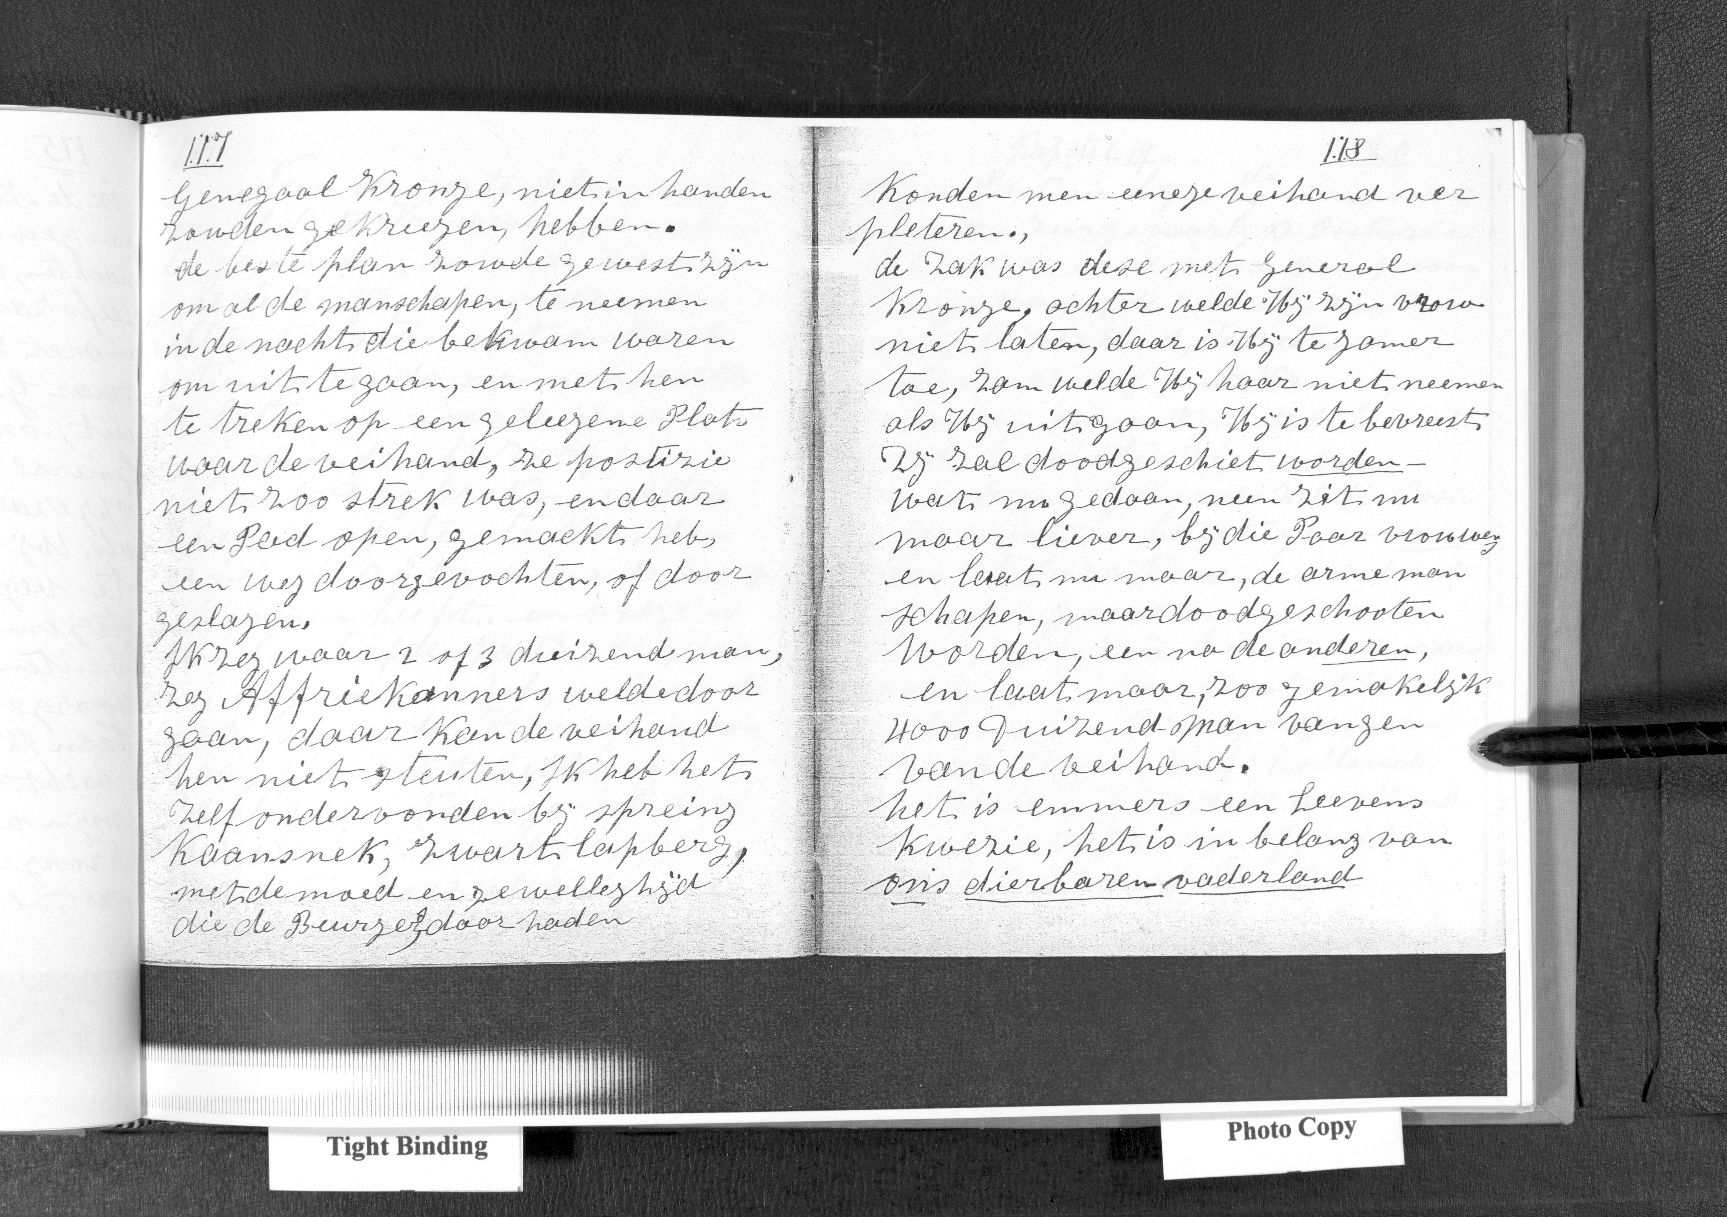 117
Genegaal Kronge, niet in handen
zowden gekriegen, hebben.
de beste plan zowde gewest zijn
om al de manschapen, te neemen
in de nacht die bekwam waren
om uit te gaan, en met hen
te treken op een geleegene Plats
waar de veihand, ze postizie
niet zoo strek was, en daar
een Pad open, gemackt heb,
een weg doorgevochten, of door
geslagen.
Ik zeg waar 2 of 3 duizend man,
zeg Affriekanners welde door
gaan, daar kan de veihand
hen niet steuten, Ik heb het
zelf ondervonden bij spreing
Kaansnek, zwart lapberg,
met de moed en gewelleghijd
die de Beurgers door haden
118
Konden men eenege veihand ver
pleteren.,
de zak was dese met General
Kronge, achter welde Hij zijn vrow
niet laten, daar is Hij te jamer
toe, zam welde Hij haar niet neemen
als Hij uit gaan, Hij is te bevreest
Zij zal doodgeschiet worden -
wat nu gedaan, neen zit nu
maar liever, bij die Paar vrouwen
en laat nu maar, de arme man
schapen, maar doodgeschooten
worden, een na de anderen,
en laat maar, zoo gemakelijk
4000 Duizend man vangen
van de veihand.
het is emmers een Leevens
kwezie, het is in belang van
ons dierbaren vaderland
Tight Binding
Photo Copy